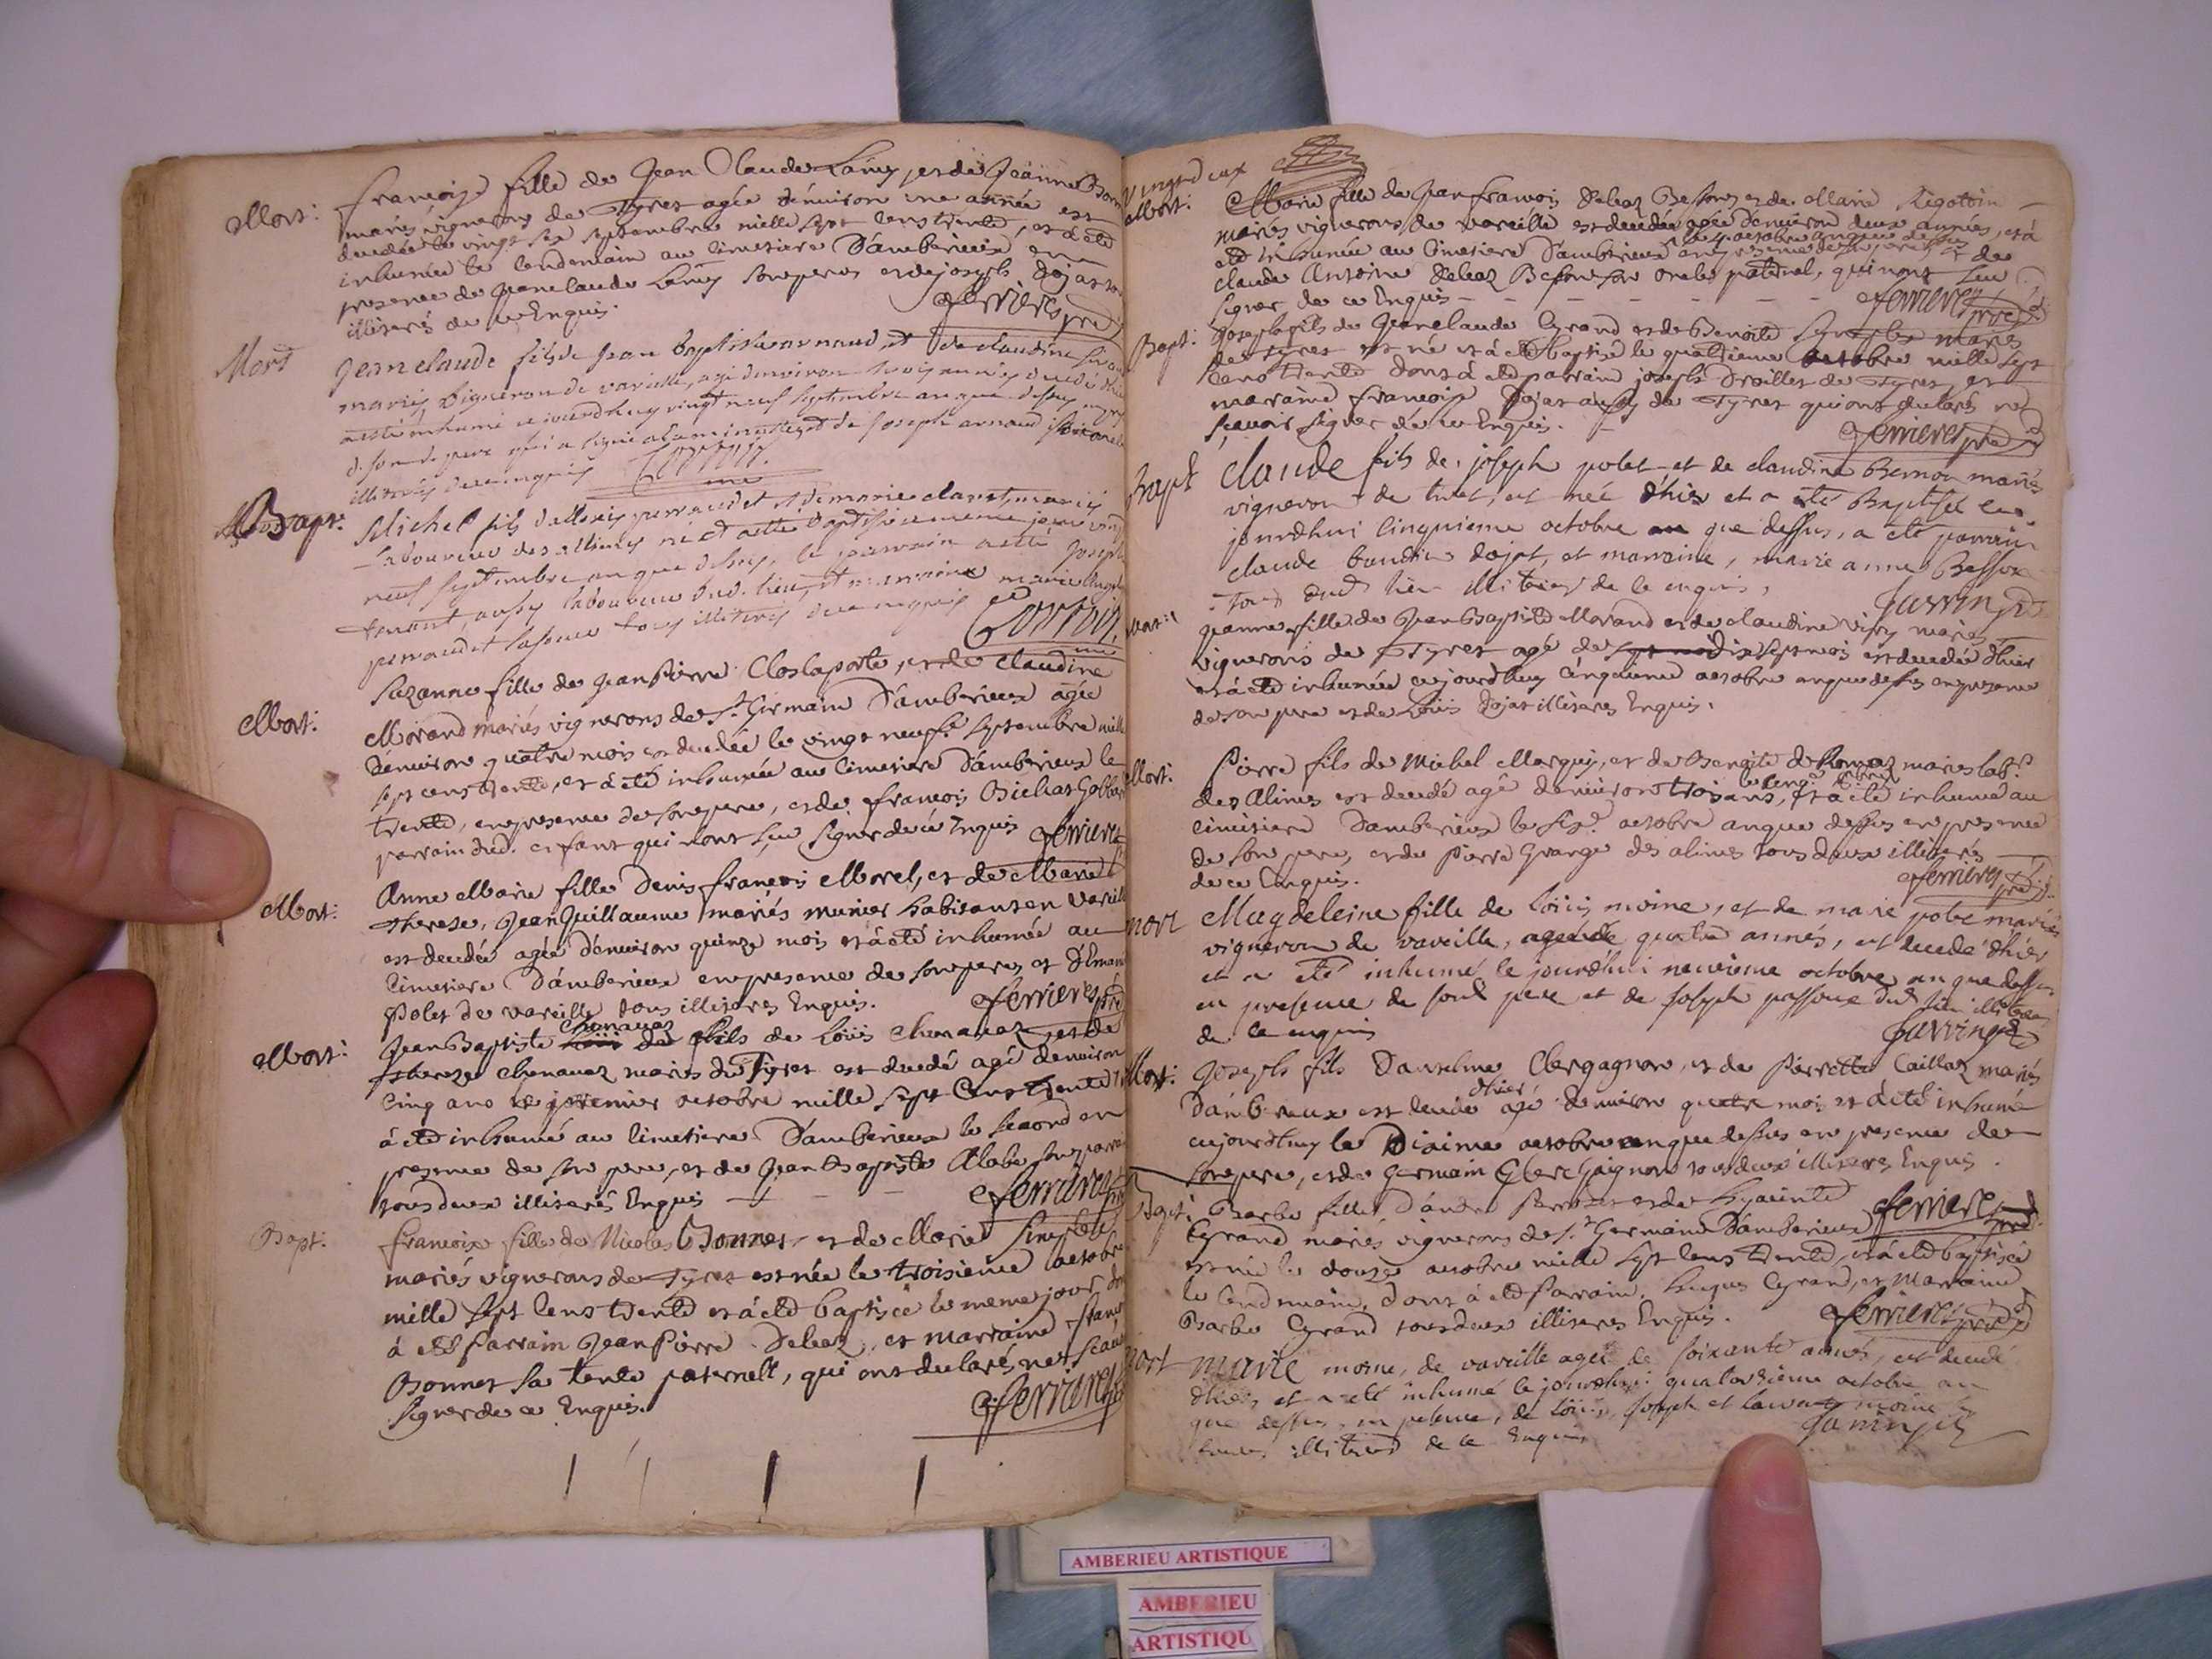 Mort: françoise fille de Jean Claude Lamy, et de Jeanne
mariés vignerons de Tyret agée d'environ une année est
decedée le vingt six septembre mille sept cens trente, et a été
inhumée le lendemain au cimetiere d'amberieux en
presence de Jean claude Lamy son pere et de joseph Dojat
illiterés de ce Enquis.
ferrieres pre
Mort Jean claude fils de Jean baptiste arnaud, et de claudine
mariés vigneron de vareille, agé denviron trois années decedé
a esté inhumé ce jourdhuy vingt neuf septembre an que dessus
de son pere qui a signé a la minutte et de Joseph arnaud
illiterés de ce enquis
Bapt: Michel fils d'allexis perraudet et de marie claret, mariés
laboureur des allimes né et a été baptisé ce meme jour vingt
neuf septembre an que dessus, le parrain a été Joseph
tenant, aussy laboureur dud. lieu, et marraine marie
perraudet sa soeur tous illiterés de ce enquis
Mort: Suzanne fille de Jean Pierre Claslaporte, et de Claudine
Morand mariés vignerons de St Germain d'amberieux agée
d'environ quatre mois est decedée le vingt neufe septembre mille
sept cens trente, et a été inhumée au cimetiere d'amberieux le
trente, en presence de son pere, et de françois
parrain dud. enfant qui n'ont sçeu signer de ce Enquis ferrieres
Mort: Anne Marie fille Denis françois Morel, et de Marie
Therese, Jean Guillaume mariés munier habitans en Vareille
est decedée agée d'environ quinze mois et a été inhumée au
cimetiere d'amberieux en presence de son pere, et
Polet de vareille tous illiterés Enquis. ferrieres pre
Mort: Jean Baptiste chenavaz fils de Loüis chenavaz et de
Thereze chenavaz mariés du Tyret est decedé agé denviron
cinq ans le premier octobre mille sept Cens trente
a été inhumé au cimetiere d'amberieux le second en
presence de son pere, et de Jean Baptiste Alabe son parrain
tous deux illiterés Enquis ferrieres pre
Bapt: françoise fille de Nicolas Bonnet et de Marie
mariés vignerons de Tyret est née le troisieme octobre
mille sept cens trente et a été baptisée le meme jour dont
a été parrain Jean Pierre Deleaz, et marraine
Bonnet sa tente paternelle, qui ont declaré ne sçavoir
signer de ce Enquis. ferrieres
Vingt deux
Mort: Marie fille de Jean françois Deleaz Besson, et de Marie Rigotoin
mariés vignerons de vareille est decedée agée denviron deux années, et a
été inhumée au cimetiere d'amberieux le 4 octobre an que dessus en presence de son pere et de
claude Antoine Deleaz Besson son oncle paternel, qui n'ont sçu
signer de ce Enquis ferrieres pre
Bapt: Joseph fils de Jean claude Cyrand et de Benoite mariés
de Tyret est né et a été baptisé le quatrieme octobre mille sept
cens trente dont a été parrain joseph Droillet de Tyret, et
maraine françoise Dojat aussy de Tyret qui ont declaré ne
sçavoir signer de ce Enquis. ferrieres pre
Bapt claude fils de joseph polet et de claudine Bernon mariés
vigneron de tiret, est née d'hier et a été Baptisé ce
jourdhui cinquieme octobre an que dessus, a été parrain
claude baudin dojat, et marraine, marie anne Besson
tous dud lieu illiterés de ce enquis, Jarrin pre
Mort: Jeanne fille de Jean Baptiste Morand et de claudine vissy mariés
vignerons de Tyret agé de dix sept mois est decedée d'hier
et a été inhumée ce jourd'huy cinquieme octobre an que dessus en presence
de son pere et de Loüis Dojat illiterés Enquis.
Mort: Pierre fils de Michel Marquis, et de Benoite de Romaz mariés labrs
des Alimes est decedé agé denviron trois ans, et a été inhumé au
cimetiere d'amberieux le sixe octobre an que dessus en presence
de son pere, et de Pierre Grange des alimes tous deux illiterés
de ce Enquis. ferrieres pre
mort Magdeleine fille de Loüis moine, et de marie polet mariés
vigneron de vareille, agée de quatre années, est decedé d'hier
et a été inhumé le jourd'hui neuvieme octobre an que dessus
en presence de sond pere et de joseph passour dud lieu illiteré
de ce enquis Jarrin pre
Mort: Joseph fils d'anselme Clergagnon, et de Pierrette Caillaz mariés
d'amberieux est decedé d'hier agé denviron quatre mois et a été inhumé
aujourdhuy le Dixime octobre an que dessus en presence de
son pere, et de Germain Clerc Gaignon tous deux illiterés Enquis.
Bapt: Barbe fille d'andré et de hyacinte ferrieres pre
Cyrand mariés vignerons de St Germain d'amberieux
est née le douze octobre mille sept cens trente, et a été baptisée
le lendemain, dont a été Parrain, hugues Cyrand, et Marraine
Barbe Cyrand tous deux illiterés Enquis. ferrieres pre
mort marie moine, de vareille agée de soixante années, est decedé
d'hier, et a été inhumé le jourdhuy quatorzieme octobre an
que dessus, en presence, de Loüis, joseph et moine
tous illiterés de ce Enquis Jarrin pre
AMBERIEU ARTISTIQUE
AMBERIEU
ARTISTIQU